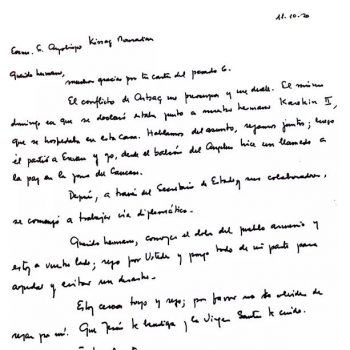 11.10.20
Excmo. S. Arzobispo Kissag Mouradian
Querido hermano,
muchas gracias por tu carta del pasado 6.
El conflicto de Artsaj me preocupa y me duele. El mismo
domingo en que se declaró estaba junto a nuestro hermano Karekin II,
que se hospedaba en esta casa. Hablamos del asunto, rezamos juntos; luego
él partió a Erevan y yo, desde el balcón del Angelus hice un llamado a
la paz en la zona del Caucaso.
Después, a través del Secretario de Estado y sus colaboradores,
se comenzó a trabajar vía diplomática.
Querido hermano, conozco el dolor del pueblo armenio y
estoy a vuestro lado; rezo por Ustedes y pongo todo de mi parte para
ayudar y evitar un desastre.
Estoy cerca tuyo y rezo; por favor no te olvides de
rezar por mí. Que Jesús te bendiga y la Virgen Santa te cuide.